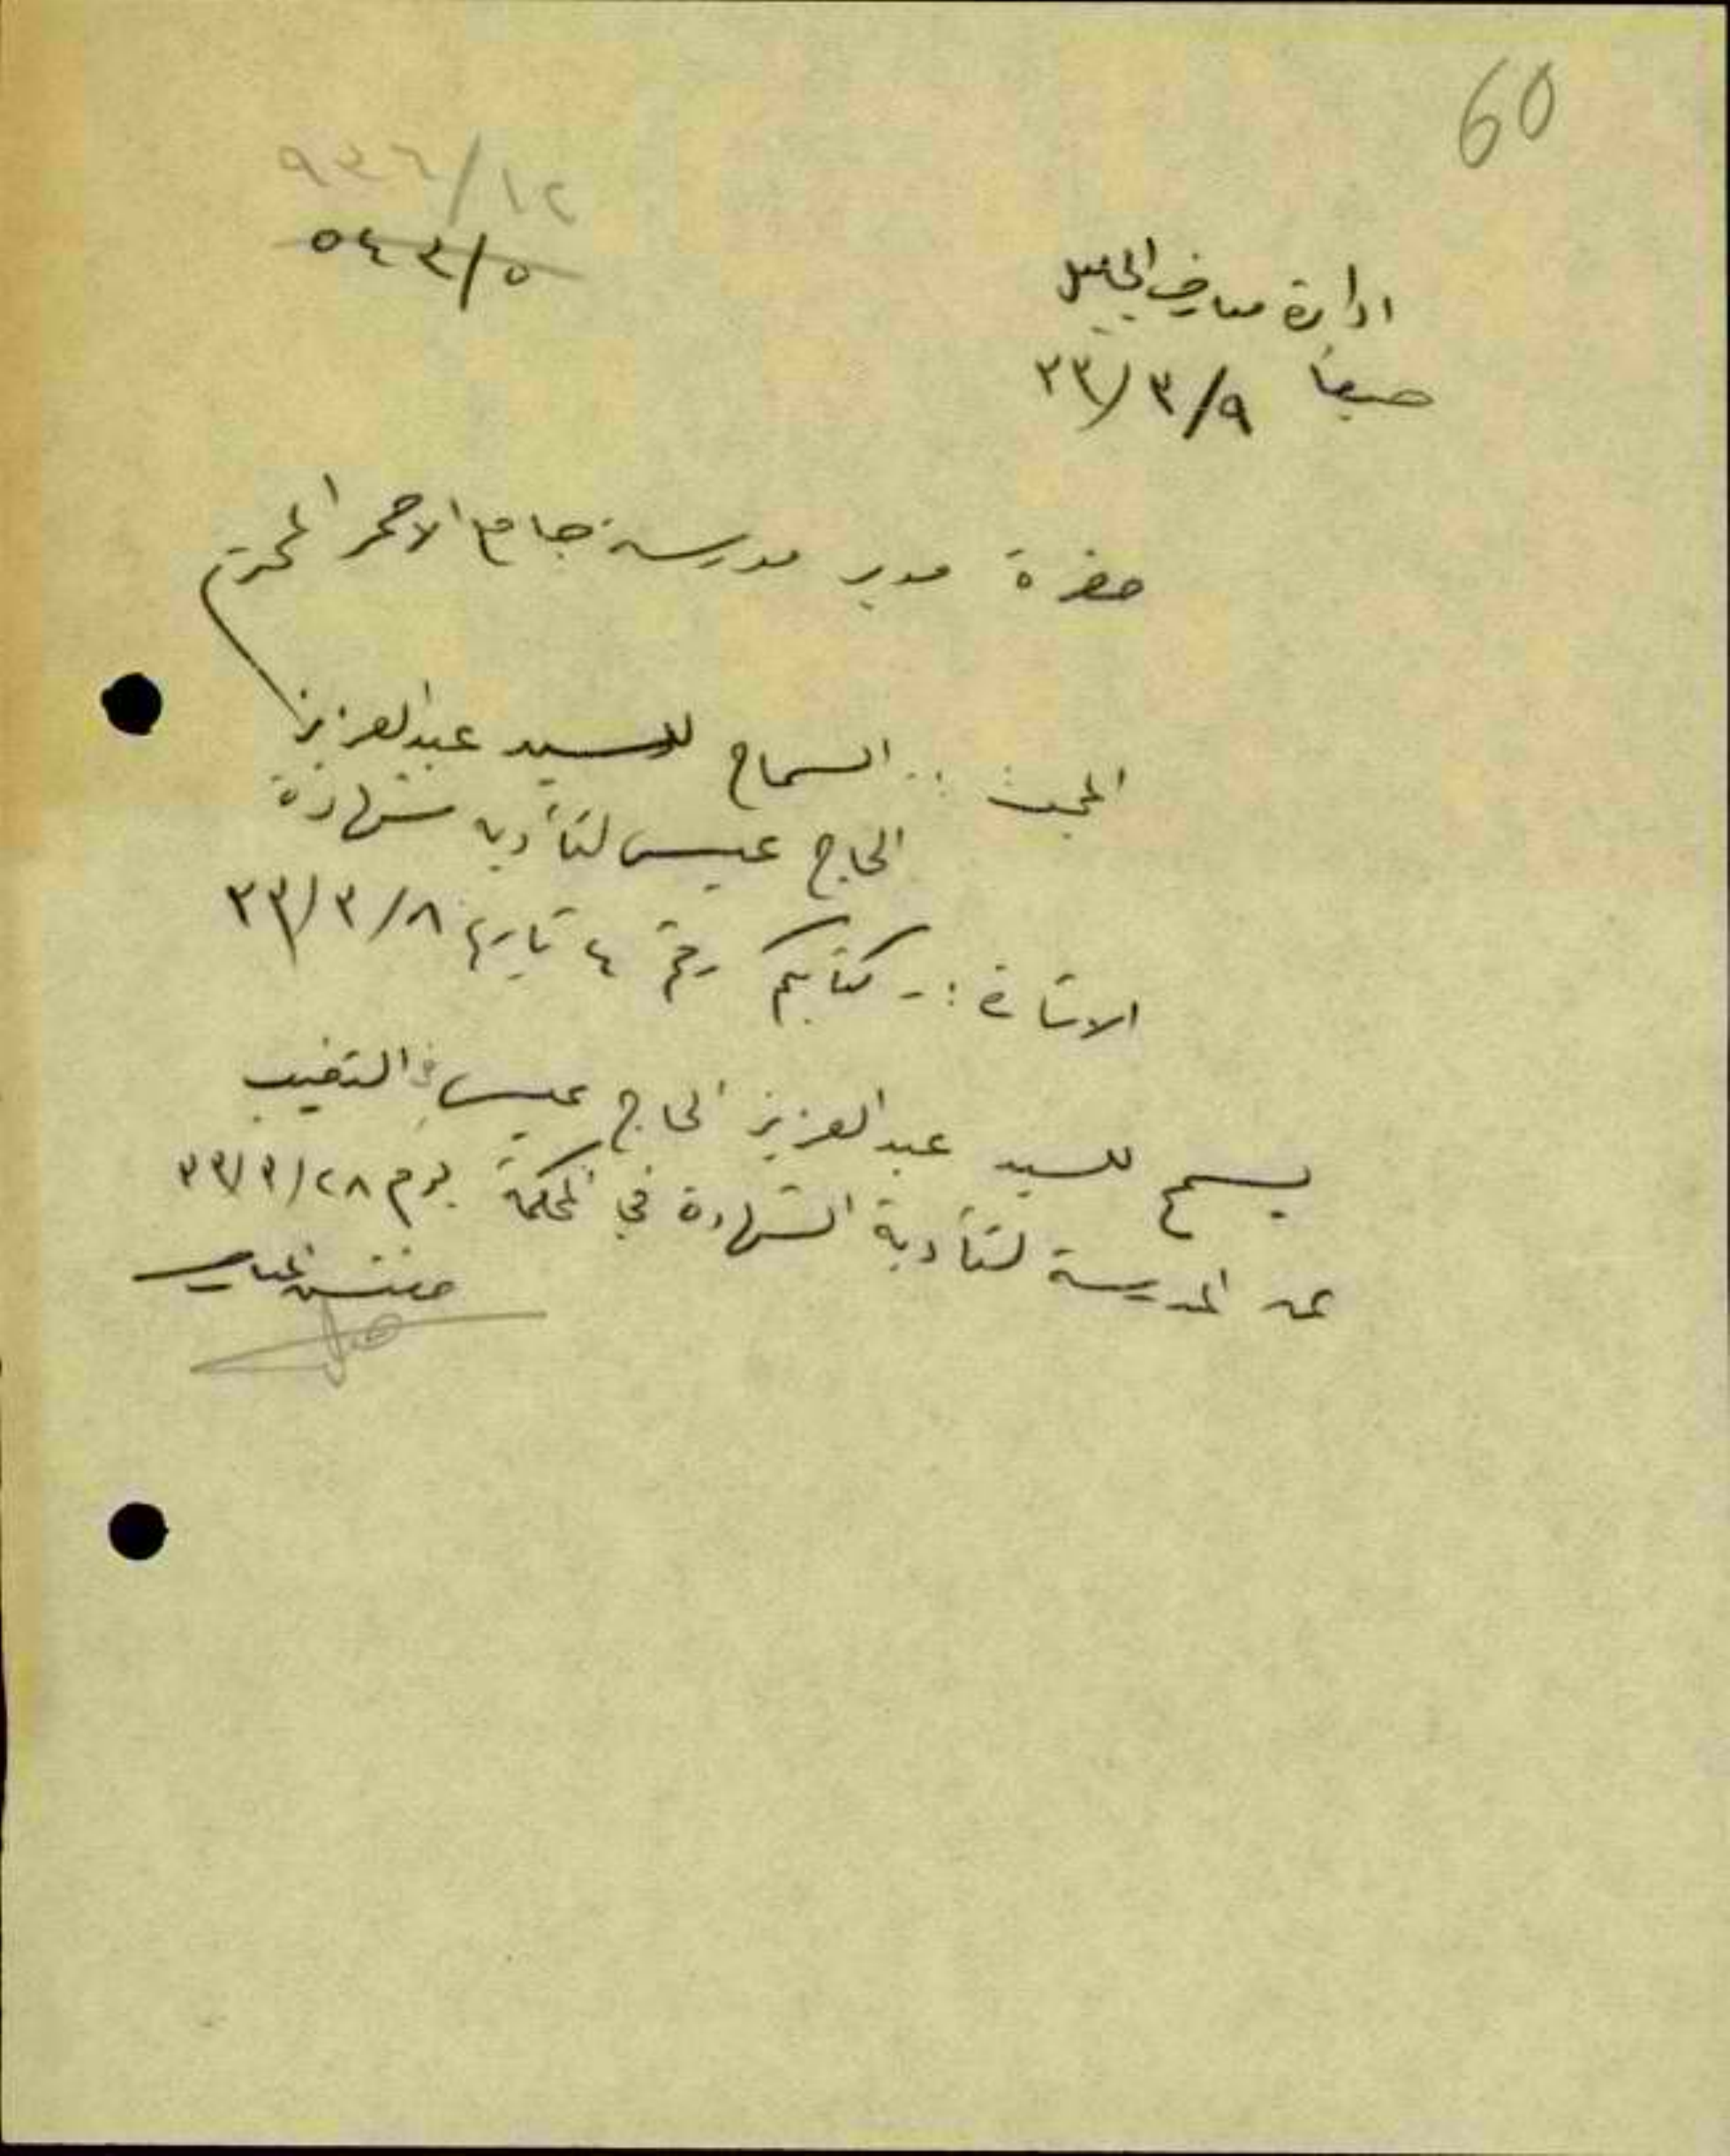 60
٩٣٦/١٢
٥٤٣/٥
ادارة معارف الجليل
صيفا ٣٣/٣/٩
حضرة مدير مدرسة جامع الاحمر المحترم
المبحث :- السماح للسيد عبد العزيز
الحاج عيسى لتأدية شهادة
الاشارة :- كتابكم رقم ٤ تاريخ ٣٣/٣/٨
يسمح للسيد عبد العزيز الحاج عيسى في التغيب
عن المدرسة لتأدية الشهادة في المحكمة يوم ٣٣/٣/٢٨
مفتش المعارف